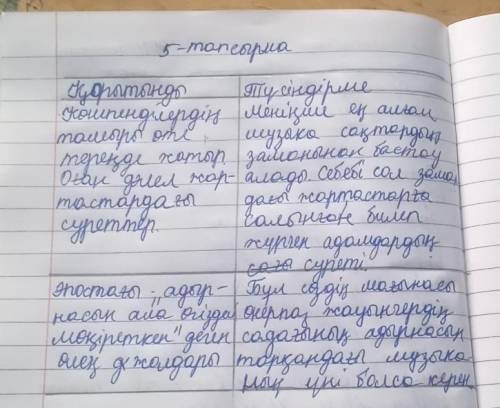 5-тапсырма
Қорытынды
Көшпенділердің
тамыры өте
тереңде жатыр
Оған дәлел жар-
тастардағы
суреттер.
Түсіндірме
Меніңше ең алғаш
музыка сақтардың
заманынан бастау
алады. Себебі сол заман
дағы жартастарға
салынған билеп
жүрген адамдардың
суреті.
Эпостағы "адыр-
насын ала өгізде
мөңіреткен" деген
өлең жолдары
Бұл сөздің мағынасы
өнерпаз жауынгердің
садағының адырнасын
тартқандағы музыка-
ның үні болса керек